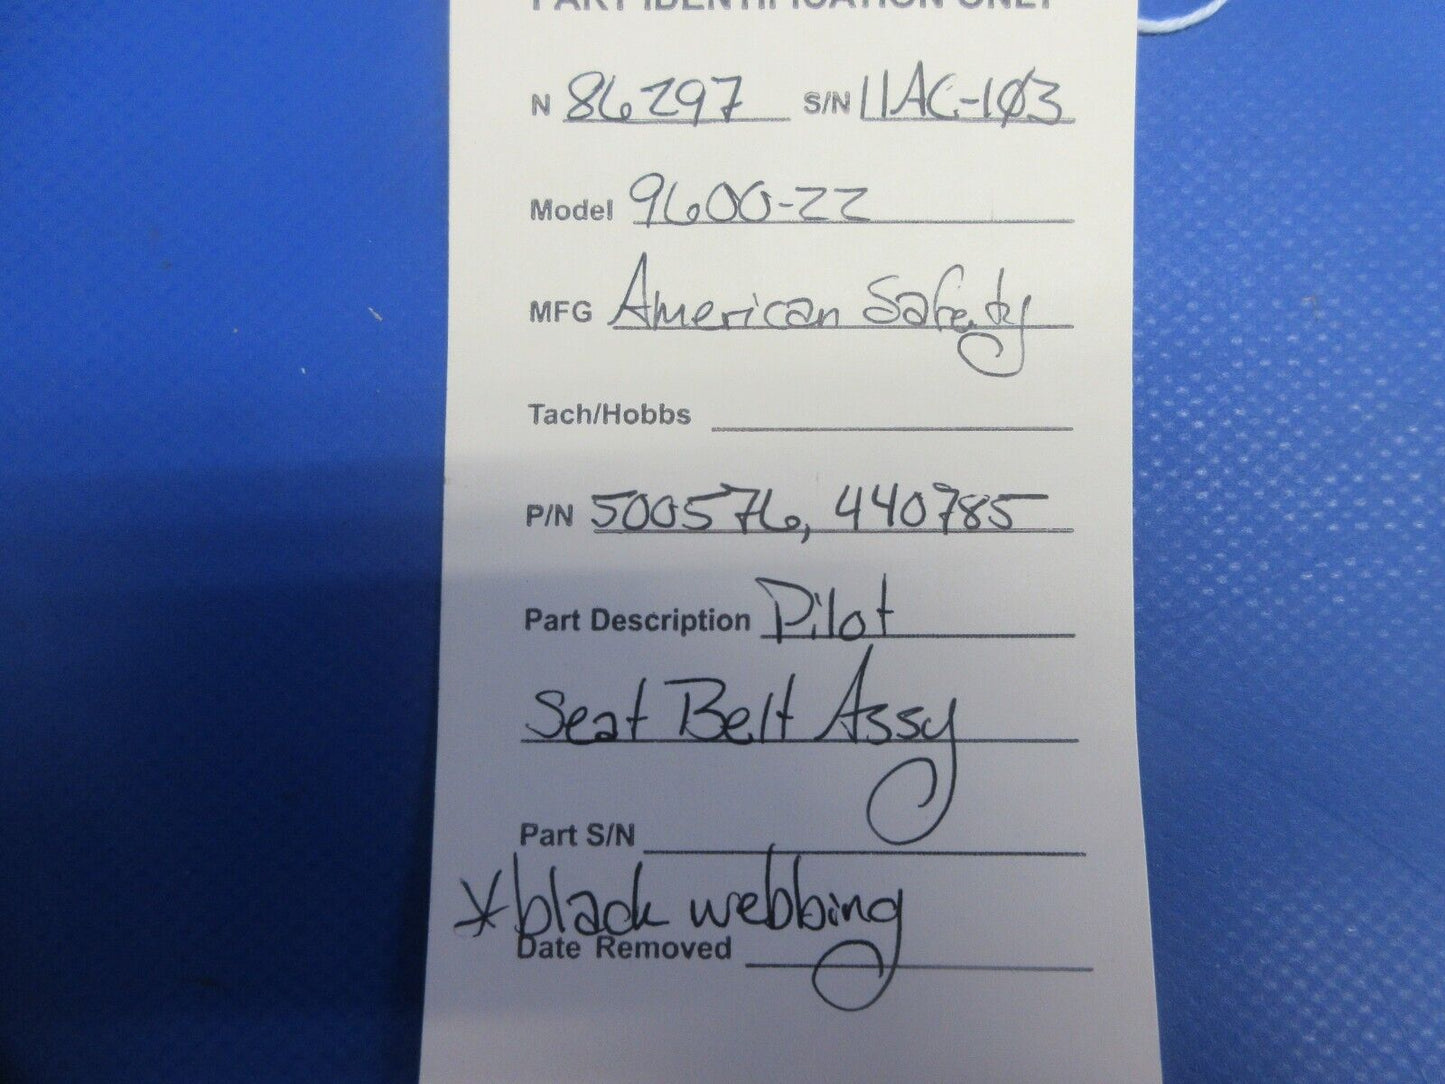 PART IDENTIFICATION ONLY
N 86297 S/N 11AC-103
Model 9600-22
MFG American Safety
Tach/Hobbs
P/N 500576, 440785
Part Description Pilot
Seat Belt Assy
Part S/N
*black webbing
Date Removed